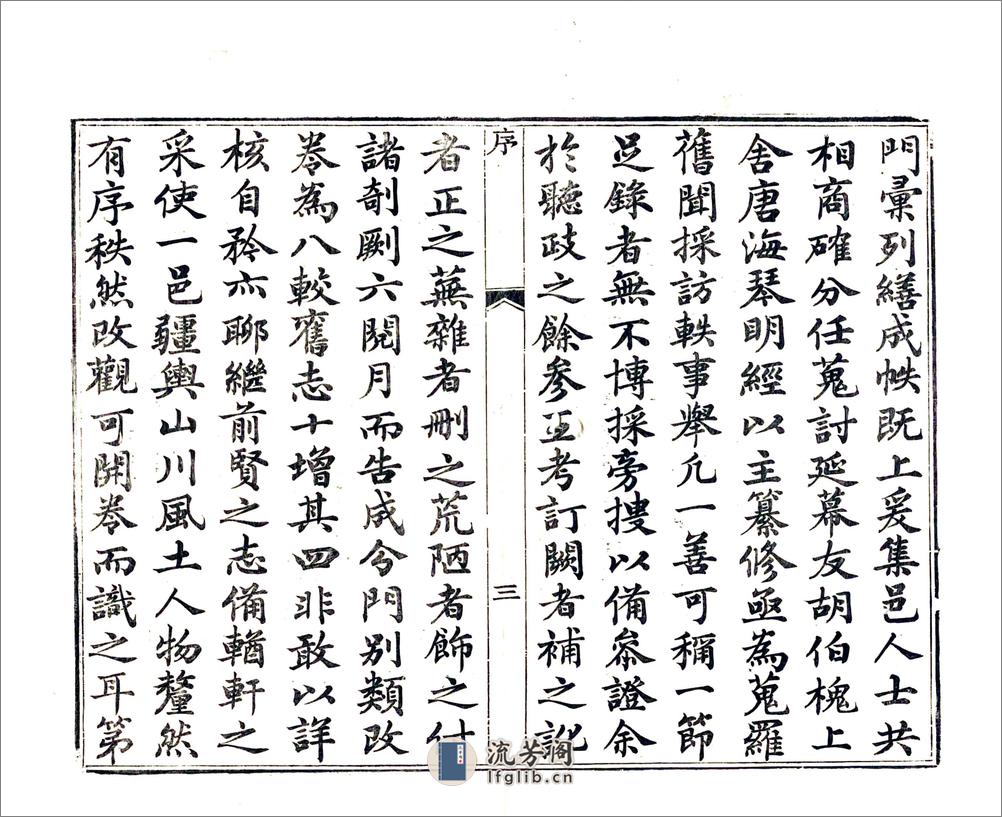 門彙列繕成帙既上爰集邑人士共
相商確分任蒐討延幕友胡伯槐上
舍唐海琴明經以主纂修亟為蒐羅
舊聞採訪軼事舉凡一善可稱一節
足錄者無不博採旁搜以備叅證余
於聽政之餘參互考訂闕者補之訛
序
三
者正之蕪雜者刪之荒陋者飾之付
諸剞劂六閱月而告成今門別類改
卷為八較舊志十增其四非敢以詳
核自矜亦聊繼前賢之志備輶軒之
采使一邑疆輿山川風土人物釐然
有序秩然改觀可開卷而識之耳第
流芳閣
lfglib.cn